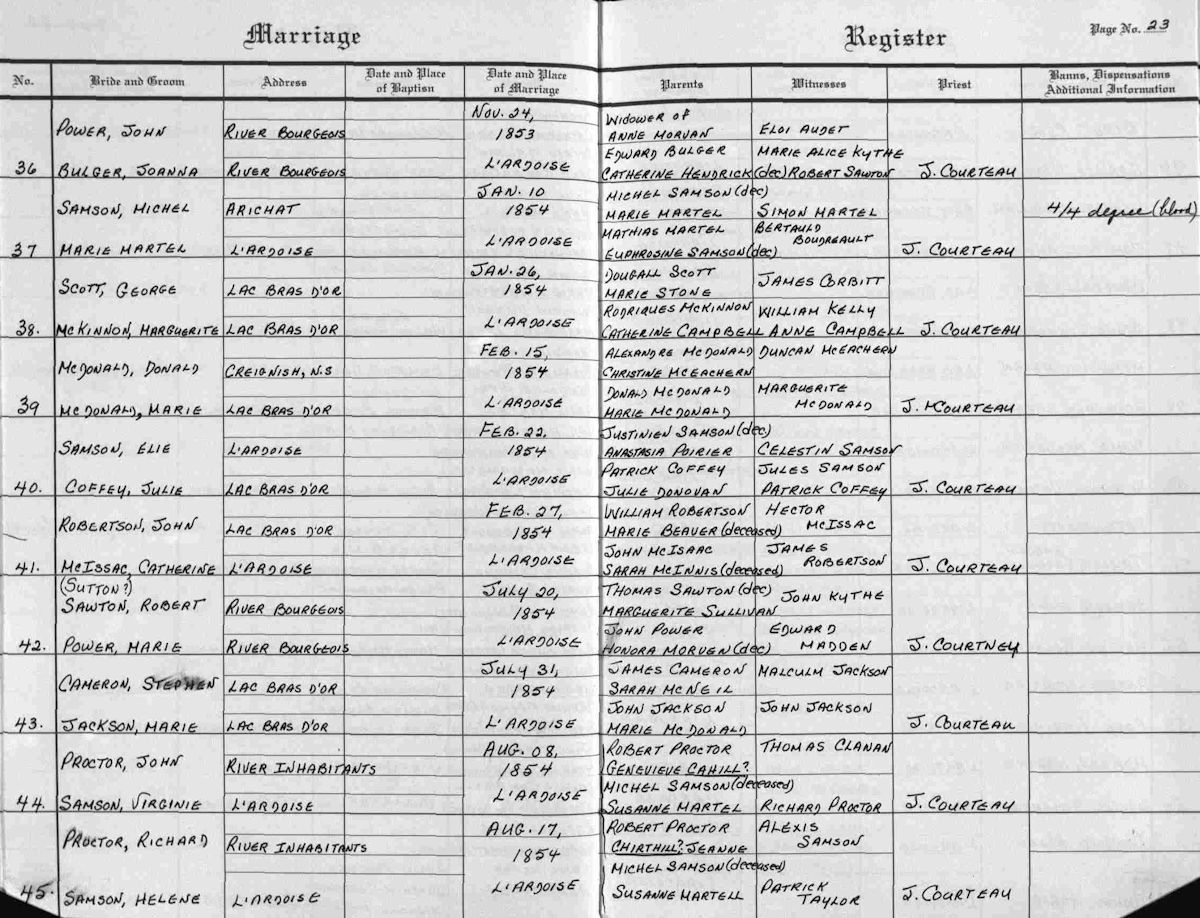 Marriage Register Page No. 23
No. Bride and Groom Address Date and Place of Baptism Date and Place of Marriage Parents Witnesses Priest Banns, Dispensations Additional Information
NOV. 24, WIDOWER OF
POWER, JOHN RIVER BOURGEOIS 1853 ANNE MORVAN ELOI AUDET
EDWARD BULGER MARIE ALICE KYTHE
36 BULGER, JOANNA RIVER BOURGEOIS L'ARDOISE CATHERINE HENDRICK (dec) ROBERT SAWTON J. COURTEAU
JAN. 10 MICHEL SAMSON (dec)
SAMSON, MICHEL ARICHAT 1854 MARIE MARTEL SIMON MARTEL 4/4 degree (blood)
MATHIAS MARTEL BERTAULD
37 MARIE MARTEL L'ARDOISE L'ARDOISE EUPHROSINE SAMSON (dec) BOUDREAULT J. COURTEAU
JAN. 26, DOUGALL SCOTT
SCOTT, GEORGE LAC BRAS D'OR 1854 MARIE STONE JAMES CORBITT
RODRIQUES MCKINNON WILLIAM KELLY
38. MCKINNON, MARGUERITE LAC BRAS D'OR L'ARDOISE CATHERINE CAMPBELL ANNE CAMPBELL J. COURTEAU
FEB. 15, ALEXANDRE MCDONALD DUNCAN MCEACHERN
MCDONALD, DONALD CREIGNISH, N.S 1854 CHRISTINE MCEACHERN
DONALD MCDONALD MARGUERITE
39 MCDONALD, MARIE LAC BRAS D'OR L'ARDOISE MARIE MCDONALD MCDONALD J. MCOURTEAU
FEB. 22. JUSTINIEN SAMSON (dec)
SAMSON, ELIE L'ARDOISE 1854 ANASTASIA POIRIER CELESTIN SAMSON
PATRICK COFFEY JULES SAMSON
40. COFFEY, JULIE LAC BRAS D'OR L'ARDOISE JULIE DONOVAN PATRICK COFFEY J. COURTEAU
FEB. 27, WILLIAM ROBERTSON HECTOR
ROBERTSON, JOHN LAC BRAS D'OR 1854 MARIE BEAVER (deceased) MCISSAC
JOHN MCISAAC JAMES
41. MCISSAC, CATHERINE L'ARDOISE L'ARDOISE SARAH MCINNIS (deceased) ROBERTSON J. COURTEAU
(SUTTON?) JULY 20, THOMAS SAWTON (dec)
SAWTON, ROBERT RIVER BOURGEOIS 1854 MARGUERITE SULLIVAN JOHN KYTHE
JOHN POWER EDWARD
42. POWER, MARIE RIVER BOURGEOIS L'ARDOISE HONORA MORVEN (dec) MADDEN J. COURTNEY
JULY 31, JAMES CAMERON MALCULM JACKSON
CAMERON, STEPHEN LAC BRAS D'OR 1854 SARAH MCNEIL
JOHN JACKSON JOHN JACKSON
43. JACKSON, MARIE LAC BRAS D'OR L'ARDOISE MARIE MCDONALD J. COURTEAU
AUG. 08, ROBERT PROCTOR THOMAS CLANAN
PROCTOR, JOHN RIVER INHABITANTS 1854 GENEVIEVE CAHILL?
MICHEL SAMSON (deceased)
44. SAMSON, VIRGINIE L'ARDOISE L'ARDOISE SUSANNE MARTEL RICHARD PROCTOR J. COURTEAU
AUG. 17, ROBERT PROCTOR ALEXIS
PROCTOR, RICHARD RIVER INHABITANTS 1854 CHIRTHILL? JEANNE SAMSON
MICHEL SAMSON (deceased)
45. SAMSON, HELENE L'ARDOISE L'ARDOISE SUSANNE MARTELL PATRICK TAYLOR J. COURTEAU